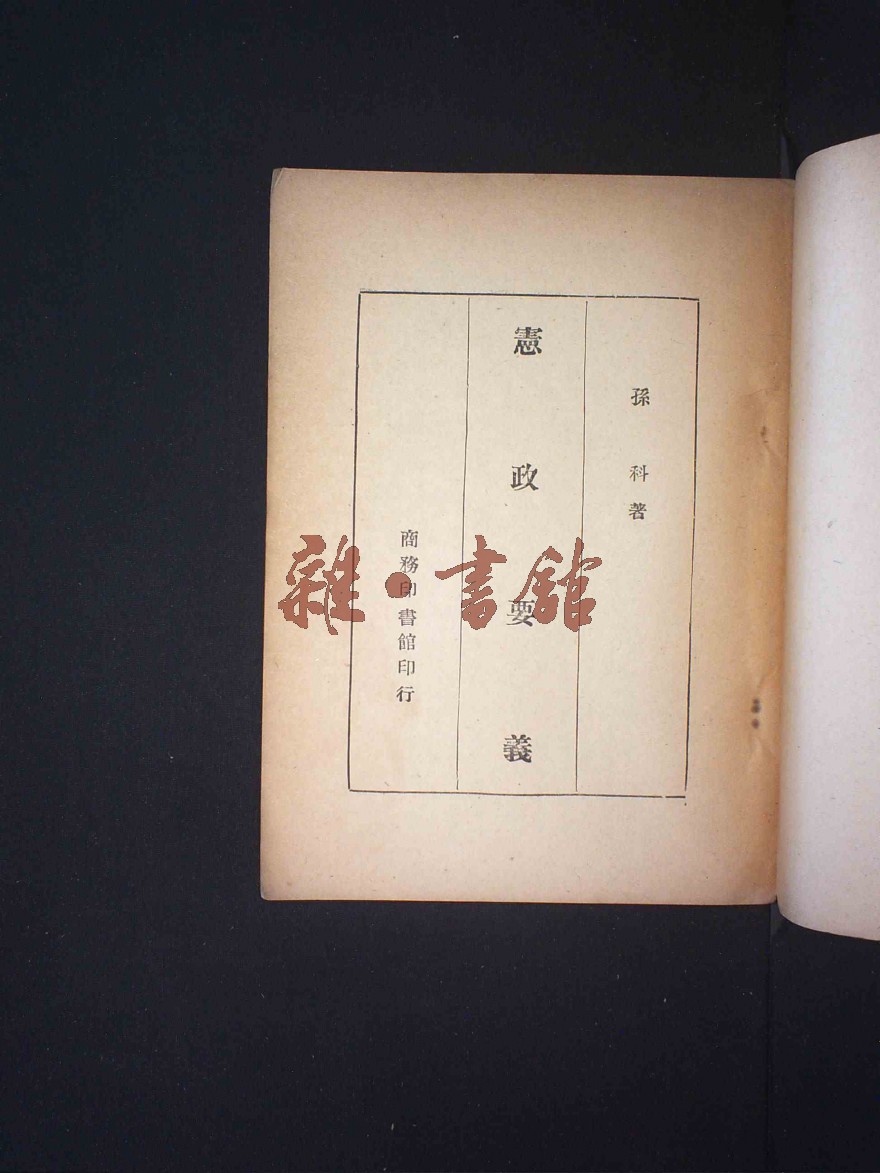 孫科著
憲政要義
商務印書館印行
雜·書館